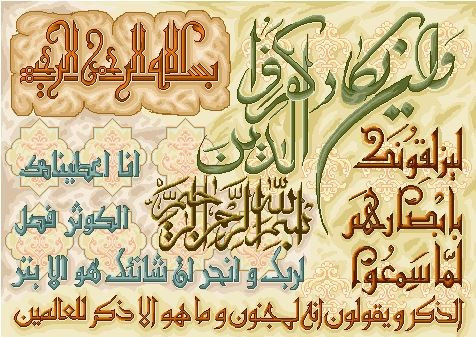 بسم الله الرحمن الرحيم
وان يكاد
الذين كفروا
ليزلقونك
بابصارهم
لما سمعوا
الذكر و يقولون انه لمجنون و ما هو الا ذكر للعالمين
بسم الله الرحمن الرحيم
انا اعطيناك
الكوثر فصل
لربك و انحر ان شانئك هو الابتر